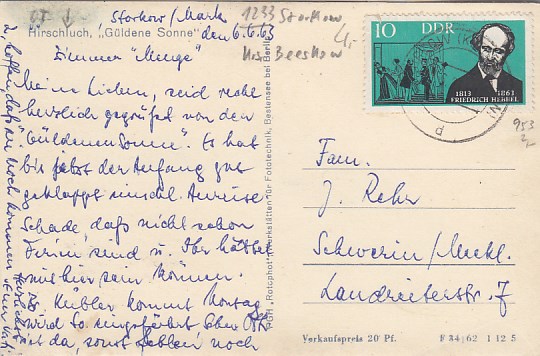 Storkow/Mark
1233 Storkow
Krs. Beeskow
Hirschluch, „Güldene Sonne"
den 6.6.63
Zimmer "Menge"
Meine Lieben, seid recht
herzlich gegrüßet von der
"Güldenen Sonne". Es hat
bis jetzt der Anfang gut
geklappt einschl. Anreise
Schade, daß nicht schon
Ferien sind u. Ihr hättet
mit hier sein können.
kommt Montag
wird so
ist da, sonst fehlen noch
hoffen, daß noch kommen
PGH „Rotophot" Werkstätten für Fototechnik, Bestensee bei Berlin
10 DDR
1813 1863
FRIEDRICH HEBBEL
953
Fam.
J. Rehr
Schwerin/Meckl.
Landreiterstr. 7
Verkaufspreis 20 Pf. F 34/62 I 12 5